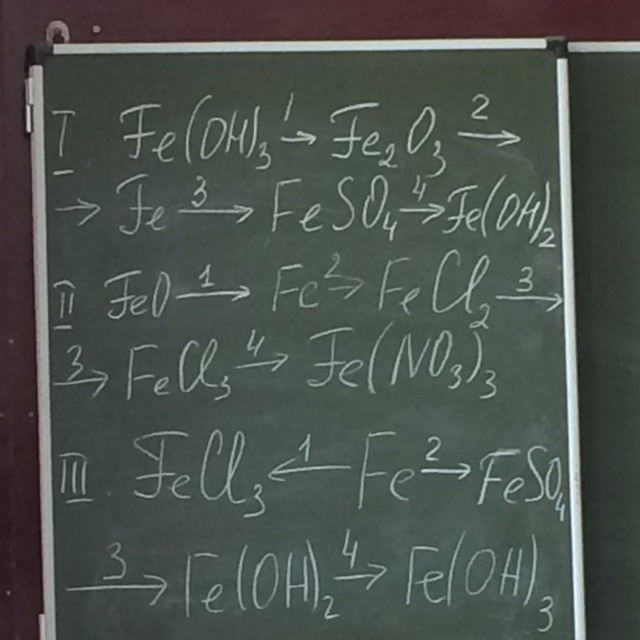 I Fe(OH)₃ —1→ Fe₂O₃ —2→
→ Fe —3→ FeSO₄ —4→ Fe(OH)₂
II FeO —1→ Fe —2→ FeCl₂ —3→
—3→ FeCl₃ —4→ Fe(NO₃)₃
III FeCl₃ ←1— Fe —2→ FeSO₄
—3→ Fe(OH)₂ —4→ Fe(OH)₃